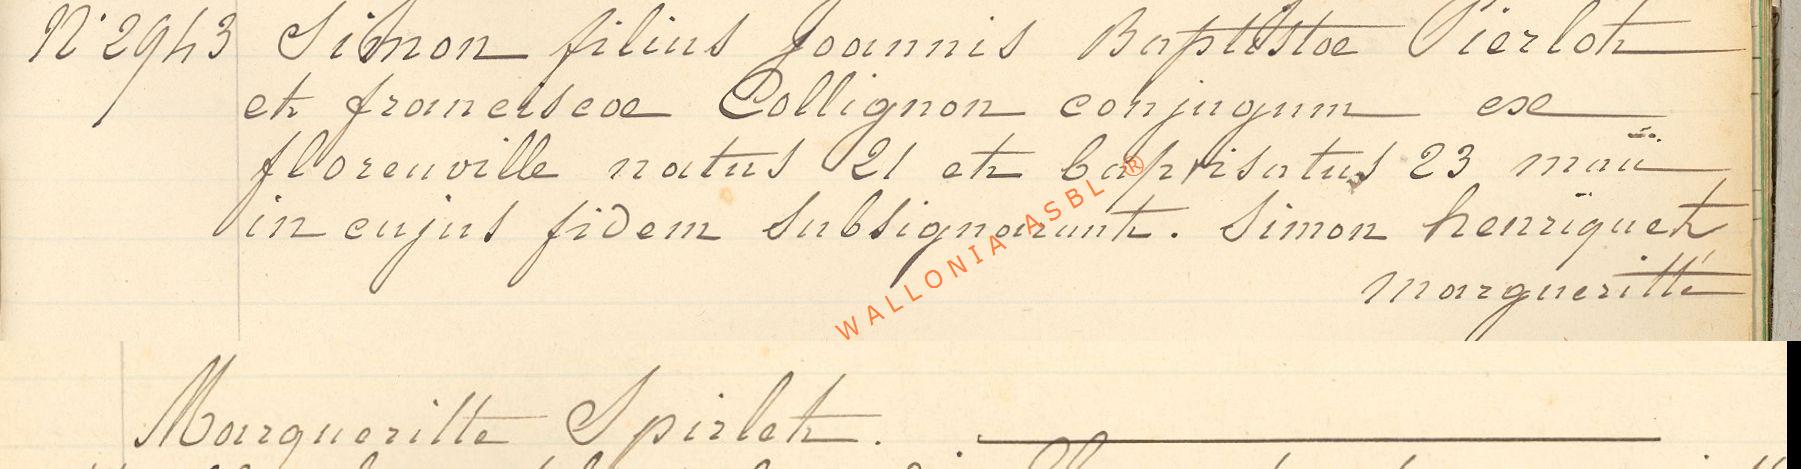 N° 2943 Simon filius Joannis Baptistae Pierlot
et franciscae Collignon conjugum ex
florenville natus 21 et baptisatus 23 maii
in cujus fidem subsignarunt. Simon henriquet
margueritte
WALLONIA ASBL ®
Margueritte Spirlet.